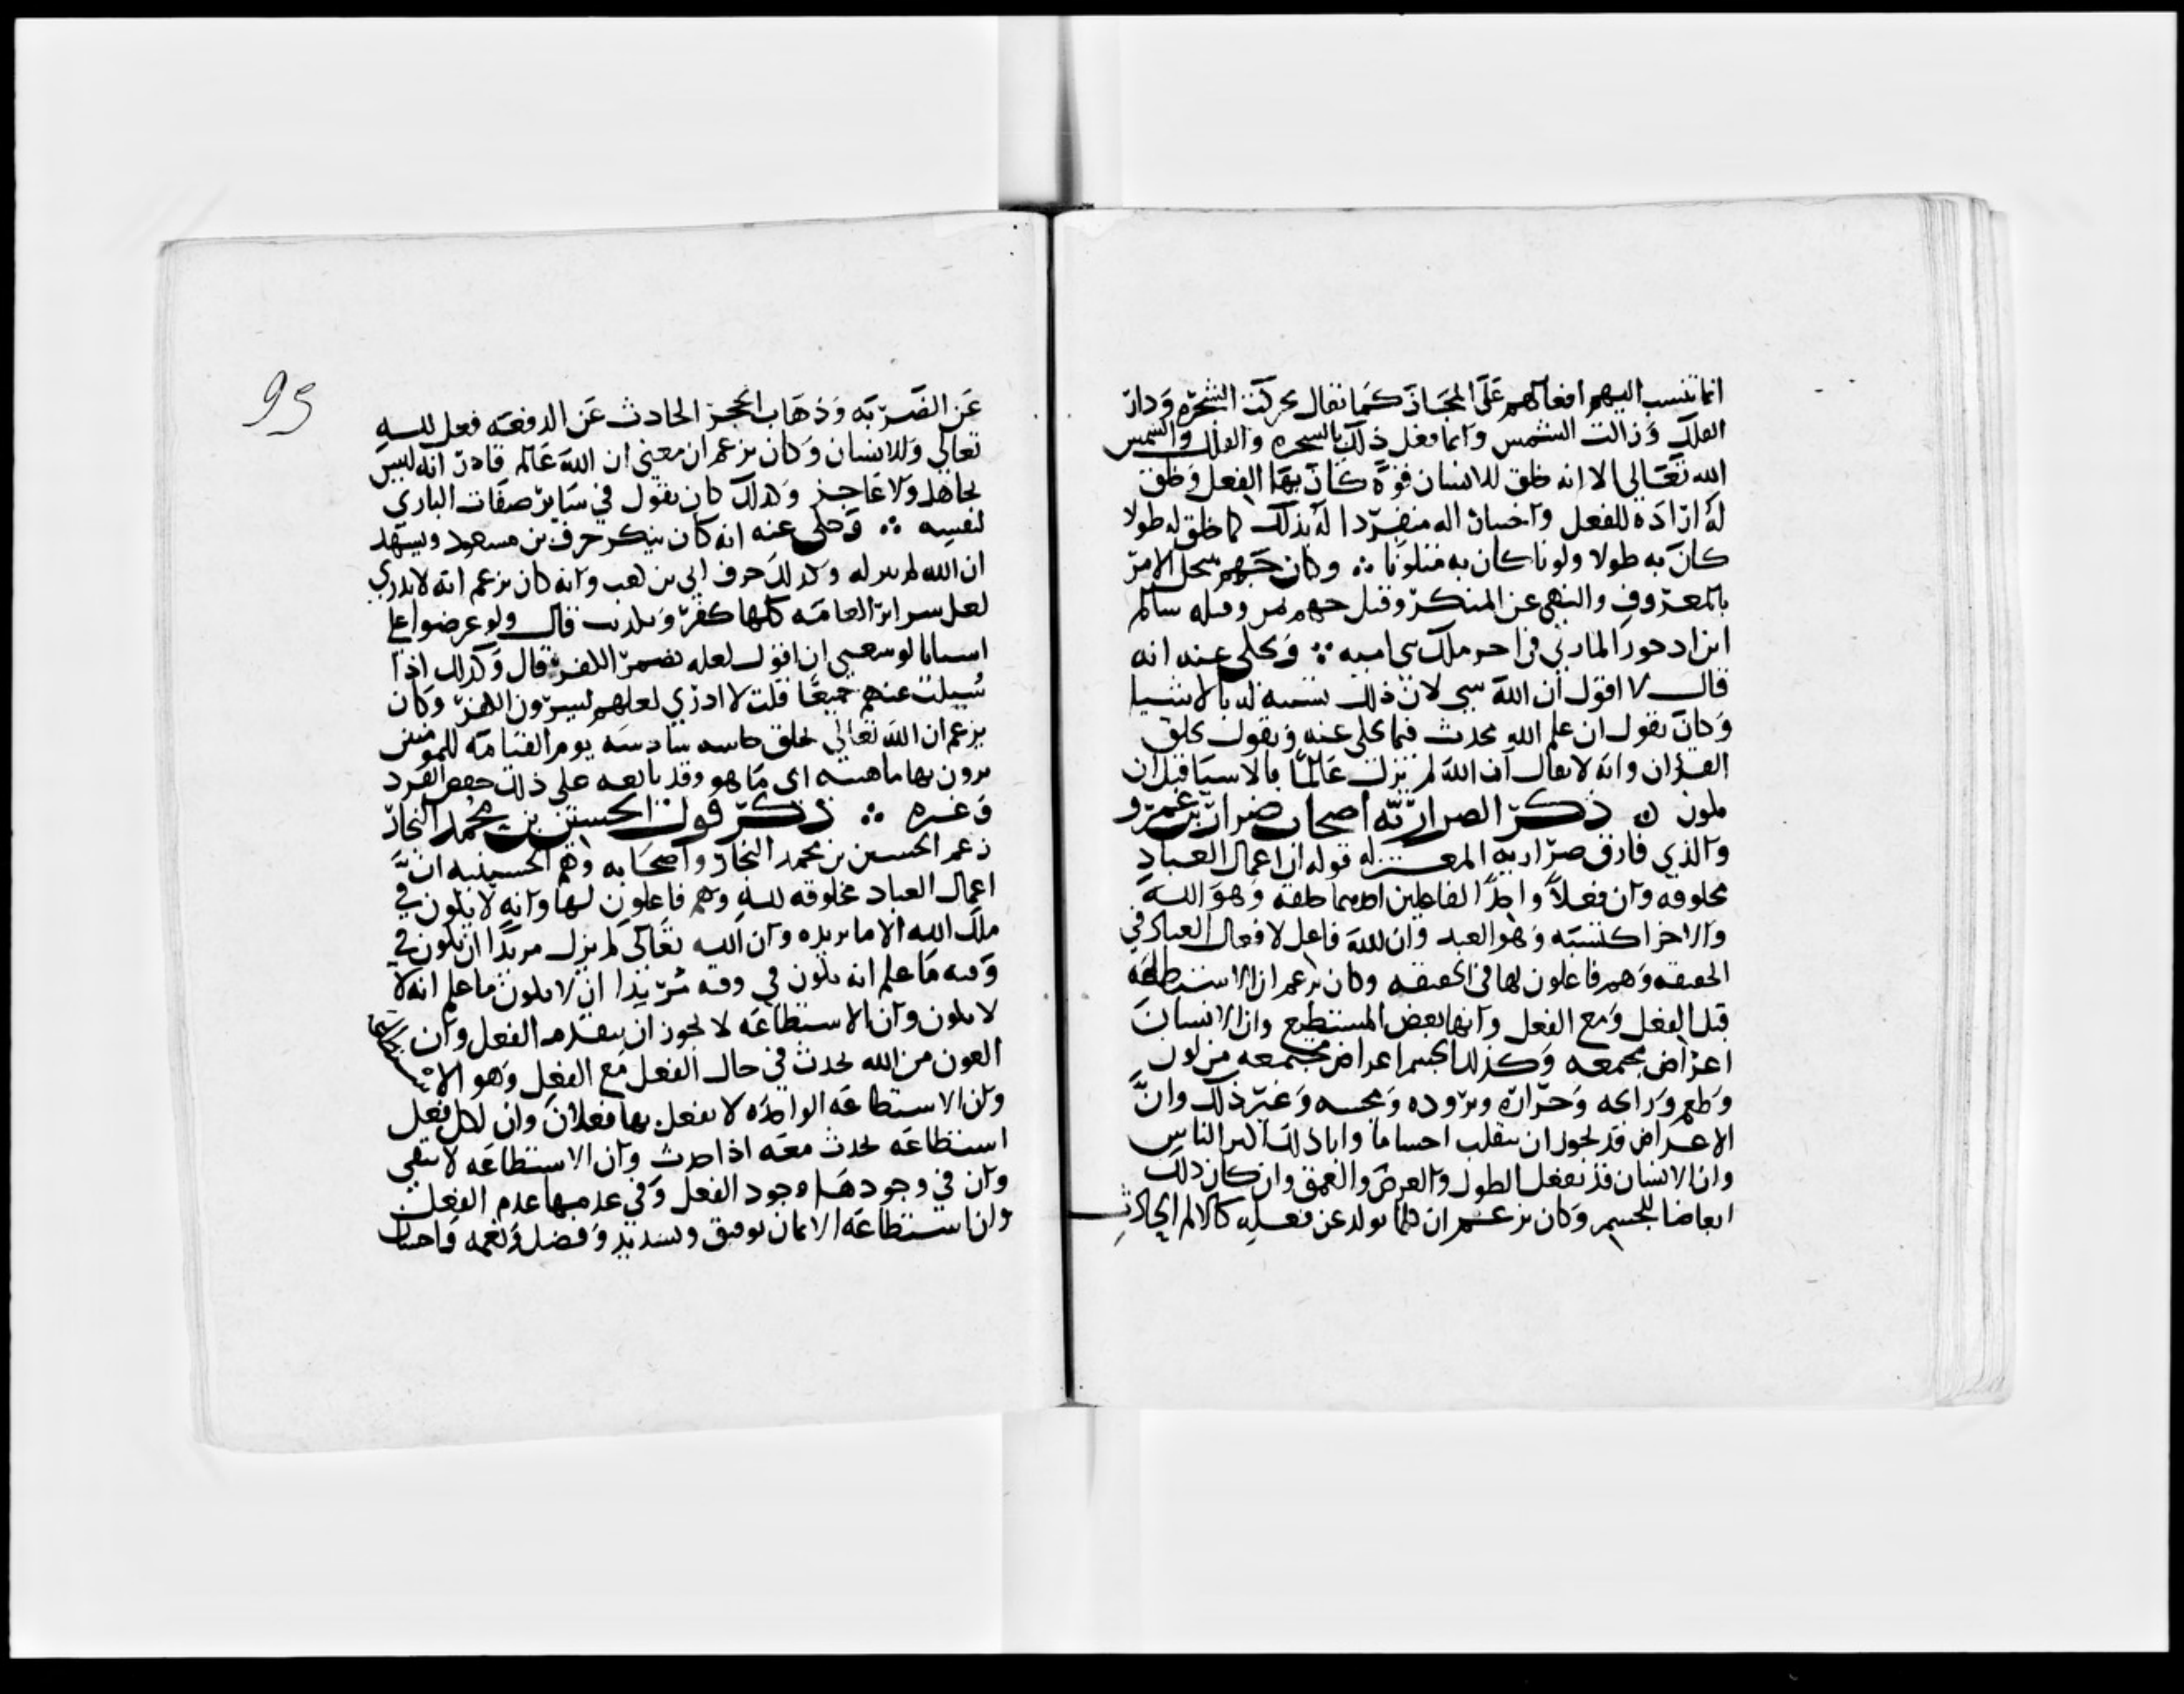 انما تنسب اليهم افعالهم على المجاز كما يقال تحركت الشجره ودار
الفلك وزالت الشمس وانما فعل ذلك بالشجره والفلك والشمس
الله تعالى الا انه خلق للانسان قوة كان بها الفعل وخلق
له ارادة للفعل واختيارا له منفردا له بذلك كما خلق له طولا
كان به طولا ولونا كان به متلونا ∴ وكان جهم ينتحل الامر
بالمعروف والنهي عن المنكر وقتل جهم بمرو قتله سالم
ابن احوز المازني في اخر ملك بني اميه ∴ ويحكى عنه انه
قال لا اقول ان الله شي لان ذلك تشبيه له بالاشيا
وكان يقول ان علم الله محدث فيما يحكى عنه ويقول بخلق
القران وانه لا يقال ان الله لم يزل عالما بالاشيا قبل ان
تكون ن ذكر الضراريه اصحاب ضرار بن عمرو
والذي فارق ضرار به المعتزله قوله ان اعمال العباد
مخلوقه وان فعلا واحدا لفاعلين احدهما خلقه وهو الله
والاخر اكتسبه وهو العبد وان الله فاعل لافعال العباد في
الحقيقه وهم فاعلون لها في الحقيقه وكان يزعم ان الاستطاعه
قبل الفعل ومع الفعل وانها بعض المستطيع وان الانسان
اعراض مجتمعه وكذلك الجسم اعراض مجتمعه من لون
وطعم ورائحه وحراره وبروده ومجسه وغير ذلك وان
الاعراض قد يجوز ان تنقلب اجساما وابا ذلك اكثر الناس
وان الانسان قد يفعل الطول والعرض والعمق وان كان ذلك
ابعاضا للجسم وكان يزعم ان كلما تولد عن فعله كالالم الحادث
95
عن الضربه وذهاب الحجر الحادث عن الدفعه فعل لله
تعالى وللانسان وكان يزعم ان معنى ان الله عالم قادر انه ليس
بجاهل ولا عاجز وكذلك كان يقول في سائر صفات الباري
لنفسه ∴ وحكى عنه انه كان ينكر حرف بن مسعود ويشهد
ان الله لم ينزله وكذلك حرف ابي بن كعب وانه كان يزعم انه لا يدري
لعل سرائر العامه كلها كفر وتكذيب قال ولو عرضوا علي
انسانا لوسعني ان اقول لعله يضمر الكفر قال وكذلك اذا
سيلت عنهم جميعا قلت لا ادري لعلهم يسرون الكفر وكان
يزعم ان الله تعالى يخلق حاسه سادسه يوم القيامه للمومنين
يرون بها ماهيته اي ما هو وقد تابعه على ذلك حفص الفرد
وغيره ∴ ذكر قول الحسين بن محمد النجار
زعم الحسين بن محمد النجار واصحابه وهم الحسينيه ان
اعمال العباد مخلوقه لله وهم فاعلون لها وانه لا يكون في
ملك الله الا ما يريده وان الله تعالى لم يزل مريدا ان يكون في
وقته ما علم انه يكون في وقته مريدا ان لا يكون ما علم انه لا
لا يكون وان الاستطاعه لا يجوز ان تتقدم الفعل وان
العون من الله يحدث في حال الفعل مع الفعل وهو الاستطاعه
وان الاستطاعه الواحده لا يفعل بها فعلان وان لكل فعل
استطاعه تحدث معه اذا حدث وان الاستطاعه لا تبقى
وان في وجودها وجود الفعل وفي عدمها عدم الفعل
وان استطاعه الايمان توفيق وتسديد وفضل ونعمه واحسان